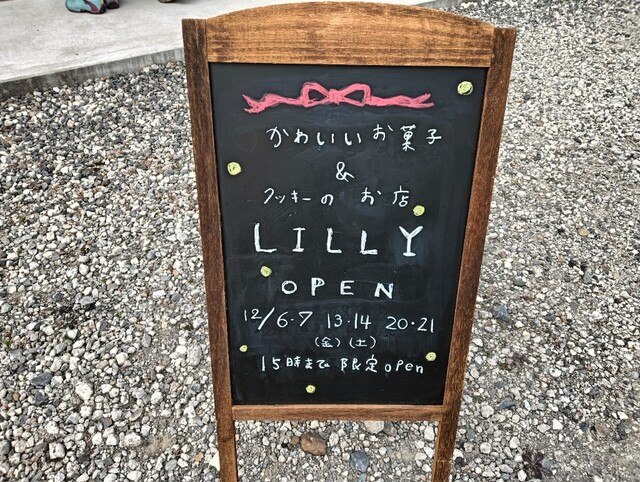 かわいいお菓子
&
クッキーの お店
LILLY
OPEN
12/6・7 13・14 20・21
(金)(土)
15時まで 限定 open